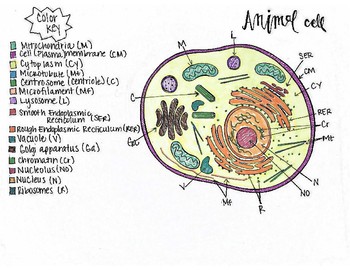 Color
Key
Mitochondria (M)
Cell (Plasma) Membrane (CM)
Cytoplasm (Cy)
Microtubule (Mt)
Centrosome (Centriole) (C)
Microfilament (Mf)
Lysosome (L)
Smooth Endoplasmic
Reticulum (SER)
Rough Endoplasmic Reticulum (RER)
Vacuole (V)
Golgi apparatus (Ga)
Chromatin (Cr)
Nucleolus (NO)
Nucleus (N)
Ribosomes (R)
Animal cell
M
L
SER
CM
CY
C
RER
Cr
Mt
Ga
N
NO
V
Mf
R